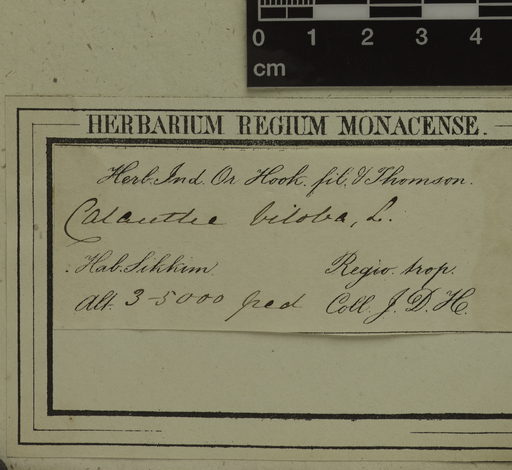 0 1 2 3 4
cm
HERBARIUM REGIUM MONACENSE.
Herb. Ind. Or Hook. fil. & Thomson.
Calanthe biloba, L.
Hab. Sikkim. Regio. trop.
Alt. 3-5000 ped Coll. J. D. H.